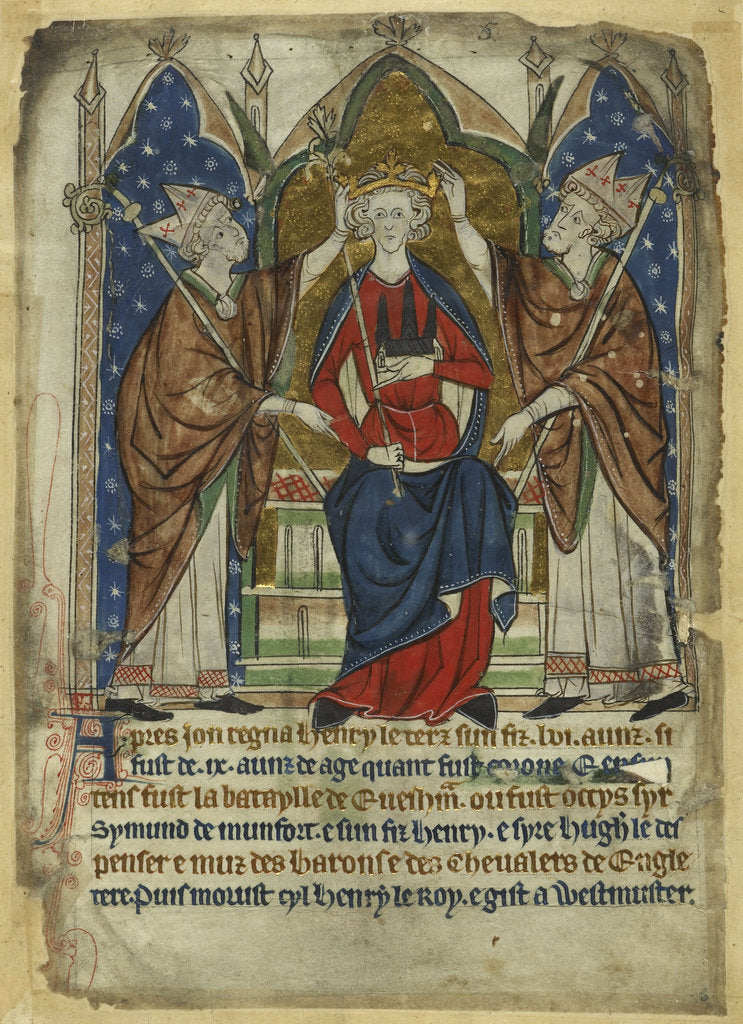 Apres Jon regna Henry le terz sun fiz. lvi. aunz. si
fust de .ix. aunz de age quant fust corone. E en sun
tens fust la bataylle de Euesham. ou fust occys syr
Symund de munfort. e sun fiz Henry. e syre Hugh le des
penser e muz des barons e des Cheualers de Engle
tere. Puis morust cyl Henry le Roy. e gist a Westmuster.
6